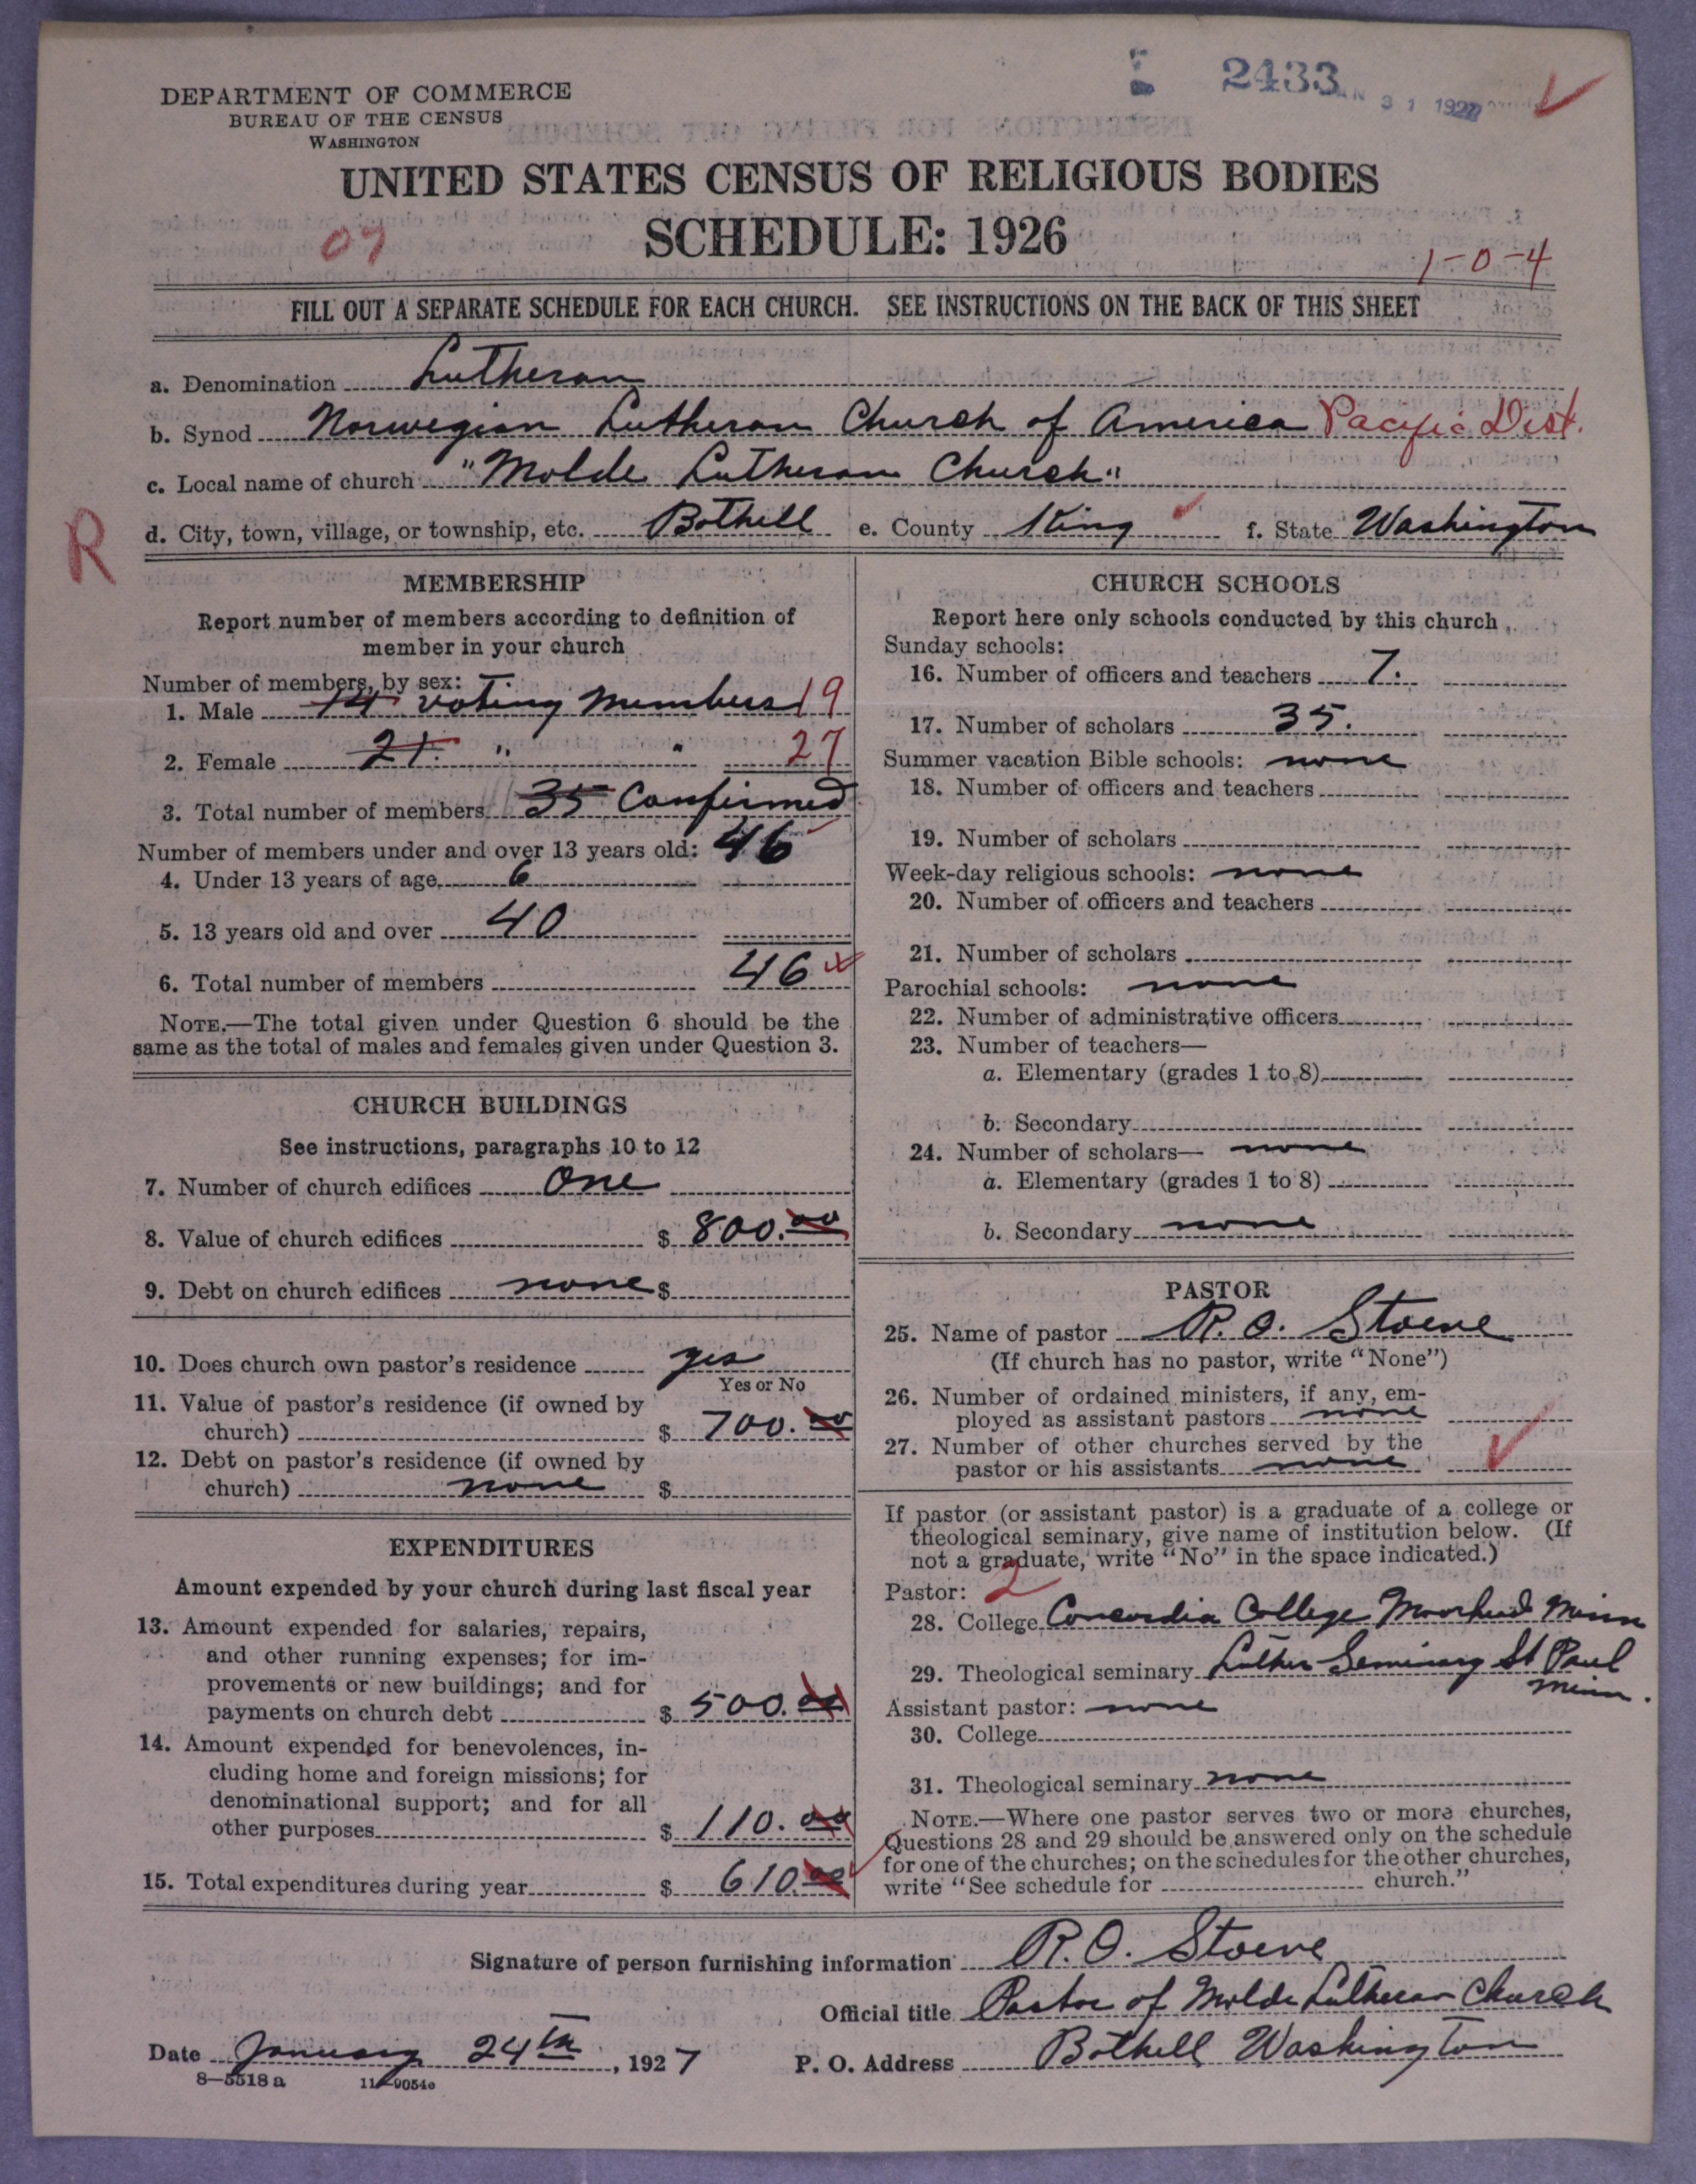 DEPARTMENT OF COMMERCE
BUREAU OF THE CENSUS
WASHINGTON
2433
31 1927
UNITED STATES CENSUS OF RELIGIOUS BODIES
SCHEDULE: 1926
07
1-0-4
FILL OUT A SEPARATE SCHEDULE FOR EACH CHURCH. SEE INSTRUCTIONS ON THE BACK OF THIS SHEET
a. Denomination Lutheran
b. Synod Norwegian Lutheran Church of America Pacific Dist.
c. Local name of church "Molde Lutheran Church"
R
d. City, town, village, or township, etc. Bothell e. County King f. State Washington
MEMBERSHIP
Report number of members according to definition of
member in your church
Number of members, by sex:
1. Male 14 voting members 19
2. Female 21. " " 27
3. Total number of members 35 Confirmed
Number of members under and over 13 years old: 46
4. Under 13 years of age 6
5. 13 years old and over 40
6. Total number of members 46
NOTE.—The total given under Question 6 should be the
same as the total of males and females given under Question 3.
CHURCH BUILDINGS
See instructions, paragraphs 10 to 12
7. Number of church edifices One
8. Value of church edifices $ 800.00
9. Debt on church edifices none $
10. Does church own pastor's residence yes
Yes or No
11. Value of pastor's residence (if owned by
church) $ 700.00
12. Debt on pastor's residence (if owned by
church) none $
EXPENDITURES
Amount expended by your church during last fiscal year
13. Amount expended for salaries, repairs,
and other running expenses; for im-
provements or new buildings; and for
payments on church debt $ 500.00
14. Amount expended for benevolences, in-
cluding home and foreign missions; for
denominational support; and for all
other purposes $ 110.00
15. Total expenditures during year $ 610.00
CHURCH SCHOOLS
Report here only schools conducted by this church
Sunday schools:
16. Number of officers and teachers 7.
17. Number of scholars 35.
Summer vacation Bible schools: none
18. Number of officers and teachers
19. Number of scholars
Week-day religious schools: none
20. Number of officers and teachers
21. Number of scholars
Parochial schools: none
22. Number of administrative officers
23. Number of teachers—
a. Elementary (grades 1 to 8)
b. Secondary
24. Number of scholars— none
a. Elementary (grades 1 to 8)
b. Secondary none
PASTOR
25. Name of pastor R. O. Stoeve
(If church has no pastor, write "None")
26. Number of ordained ministers, if any, em-
ployed as assistant pastors none
27. Number of other churches served by the
pastor or his assistants none
If pastor (or assistant pastor) is a graduate of a college or
theological seminary, give name of institution below. (If
not a graduate, write "No" in the space indicated.)
Pastor: 2
28. College Concordia College Moorhead Minn
29. Theological seminary Luther Seminary St Paul
Minn.
Assistant pastor: none
30. College
31. Theological seminary none
NOTE.—Where one pastor serves two or more churches,
Questions 28 and 29 should be answered only on the schedule
for one of the churches; on the schedules for the other churches,
write "See schedule for church."
Signature of person furnishing information R. O. Stoeve
Official title Pastor of Molde Lutheran Church
Date January 24th, 1927 P. O. Address Bothell Washington
8-5518 a 11-9054e